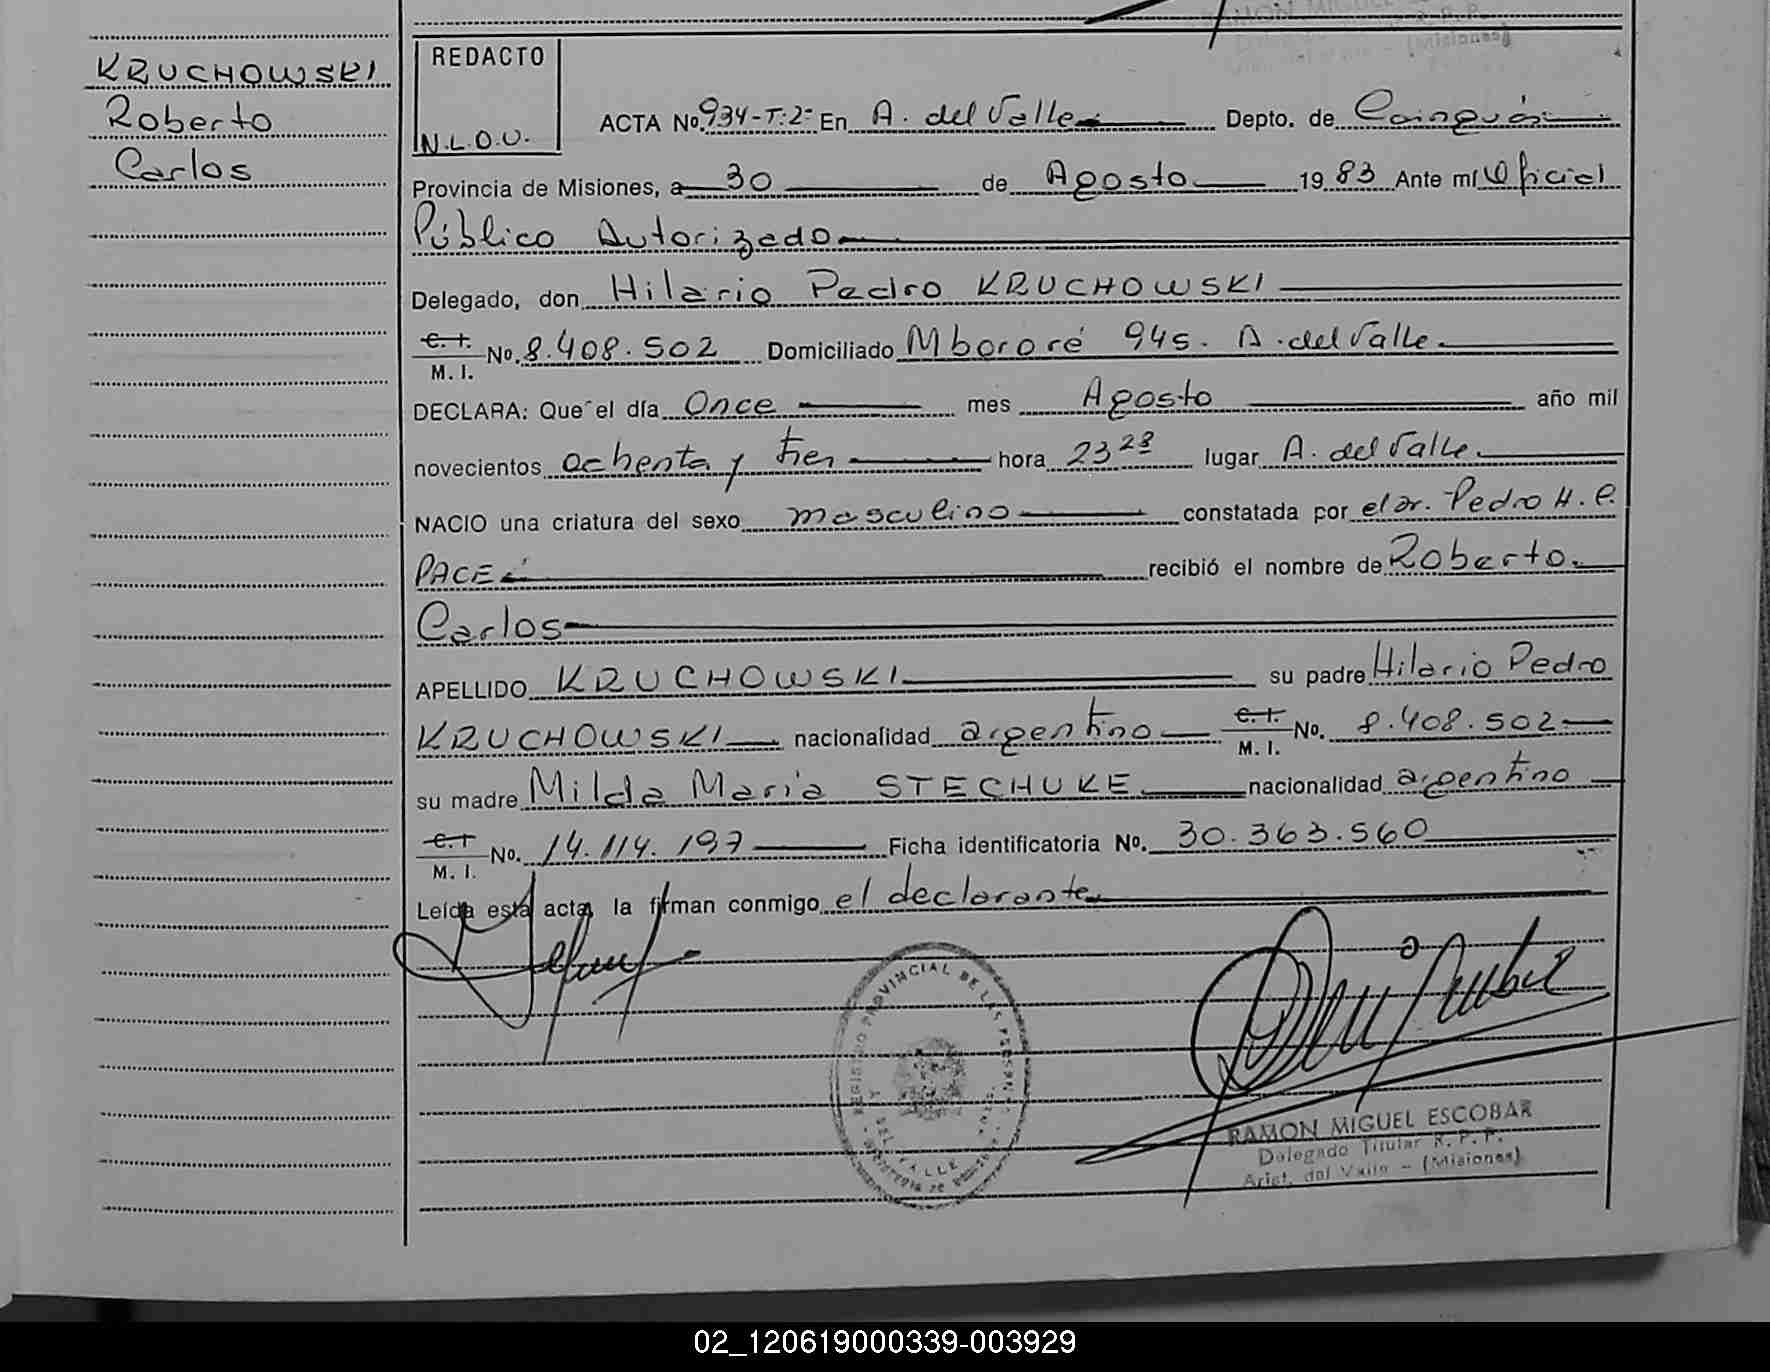 KRUCHOWSKI
Roberto
Carlos
REDACTO
N.L.O.U.
ACTA No. 934-T:2- En A. del Valle Depto. de Cainguás
Provincia de Misiones, a 30 de Agosto 1983 Ante mí Oficial
Público Autorizado
Delegado, don Hilario Pedro KRUCHOWSKI
C. I. M. I. No. 8.408.502 Domiciliado Mbororé 945. A. del Valle.
DECLARA: Que el día Once mes Agosto año mil
novecientos ochenta y tres hora 23 28 lugar A. del Valle.
NACIO una criatura del sexo masculino constatada por el Dr. Pedro H. C.
PACE recibió el nombre de Roberto
Carlos
APELLIDO KRUCHOWSKI su padre Hilario Pedro
KRUCHOWSKI nacionalidad argentino C. I. M. I. No. 8.408.502
su madre Milda Maria STECHUKE nacionalidad argentino
C. I. M. I. No. 14.114.197 Ficha identificatoria No. 30.363.560
Leída está acta, la firman conmigo el declarante
REGISTRO PROVINCIAL DE LAS PERSONAS
DEL VALLE
RAMON MIGUEL ESCOBAR
Delegado Titular R. P. P.
Arist. del Valle - (Misiones)
02_120619000339-003929